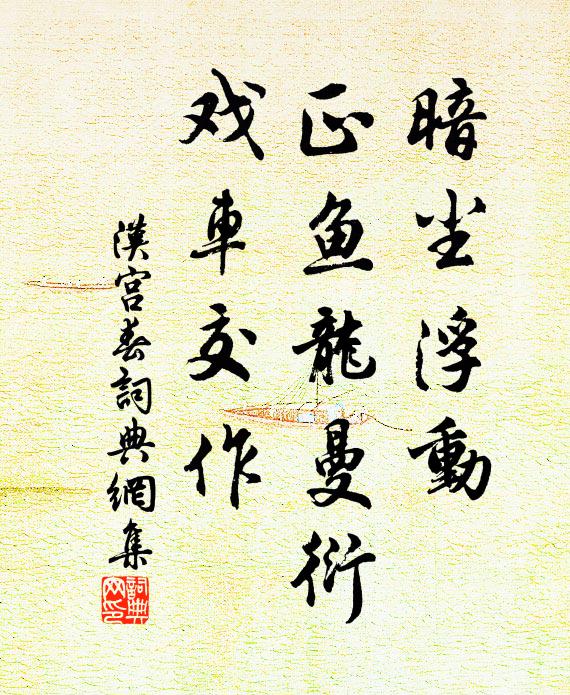 暗尘浮動
正鱼龍曼衍
戏車交作
漢宫春詞典網集
詞典网印